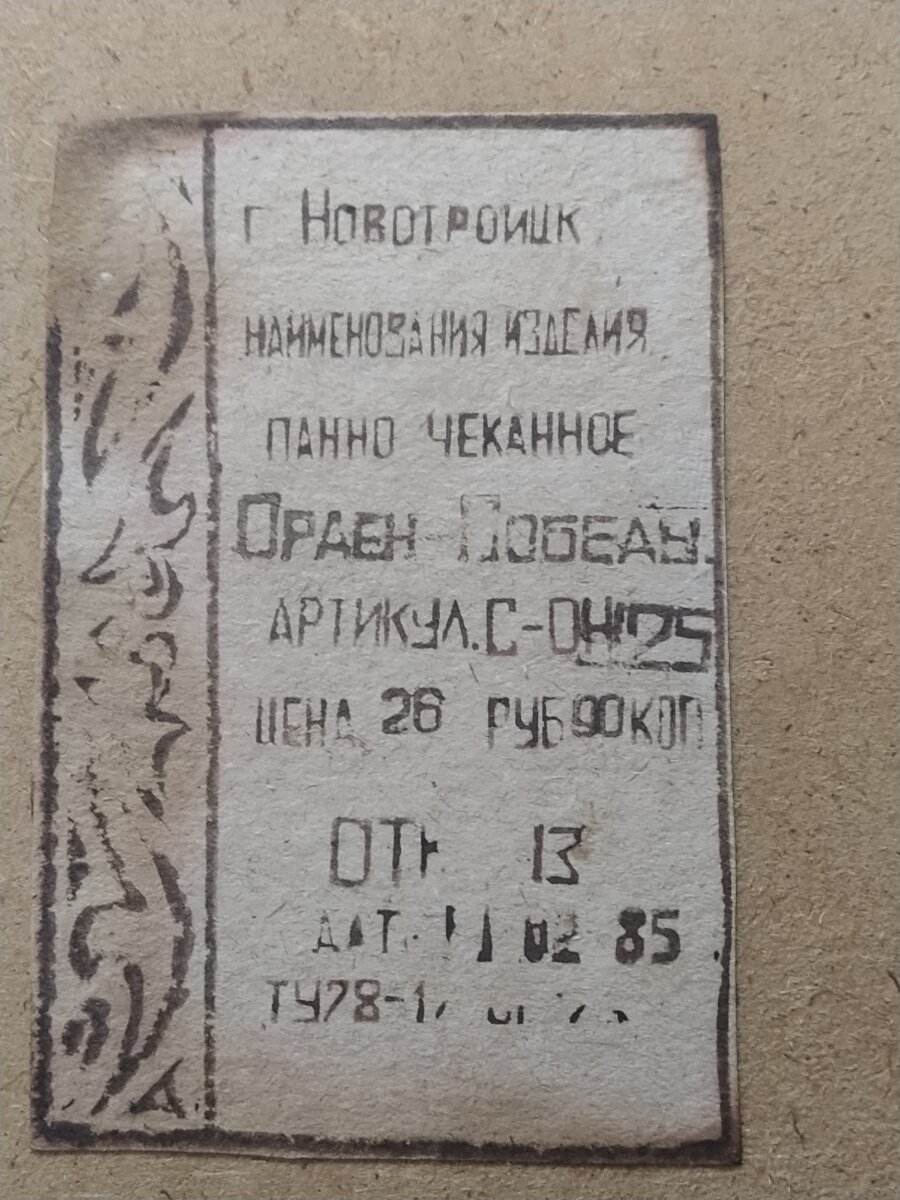 г Новотроицк
НАИМЕНОВАНИЯ ИЗДЕЛИЯ
ПАННО ЧЕКАННОЕ
ОРДЕН-ПОБЕДЫ.
АРТИКУЛ.
ЦЕНА 26 РУБ 90 КОП
ОТК 13
85